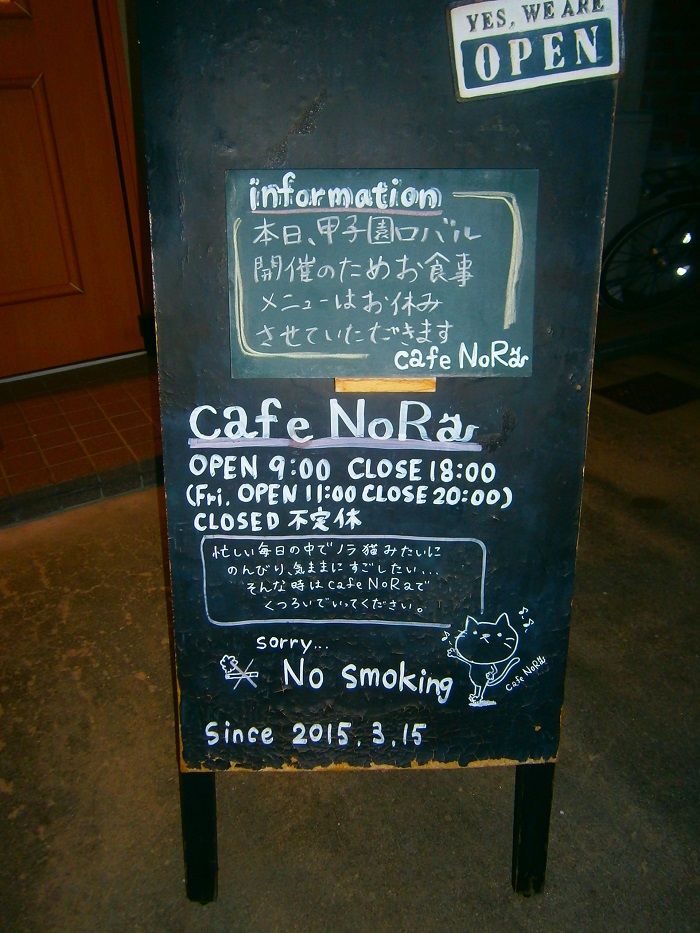 YES, WE ARE
OPEN
information
本日、甲子園口バル
開催のためお食事
メニューはお休み
させていただきます
cafe NoRa
cafe NoRa
OPEN 9:00 CLOSE 18:00
(Fri. OPEN 11:00 CLOSE 20:00)
CLOSED 不定休
忙しい毎日の中でノラ猫みたいに
のんびり、気ままにすごしたい...
そんな時はcafe NoRaで
くつろいでいってください。
sorry...
No smoking
cafe NoRa
Since 2015.3.15